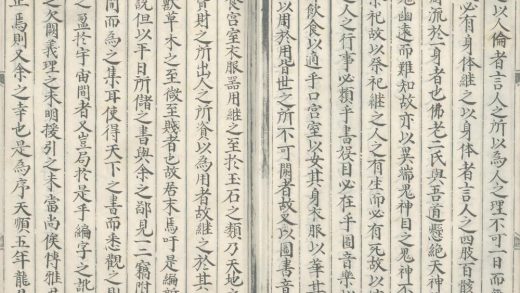 以人倫者言人之所以為人之理不可一日而
必有身体継之以身体者言人之四肢百骸
周流於一身者也佛老二氏與吾道懸絕天神
鬼幽遠而難知故亦以異端鬼神目之鬼神不
祭祀故以祭祀継之人之有生而必有死故以
人之行事必類乎書役目必在乎圖音樂以
飲食以適乎口宮室以安其身衣服以華其
以周於用皆世之所不可闕者故又以圖書音
食宮室衣服器用継之至於玉石之類乃天地之
貨財之所出人之所資以為用者故継之於其
獸草木之至微至賤者也故居末焉吁是編
說但以平日所儲之書與余之鄙見一二竊附
間而為之集耳使得天下之書而悉觀之
之盈於宇宙間者又豈局於是乎編字之訛
之欠闕義理之未明援引之未當尚俟博雅
正焉則又余之幸也是為序天順五年龍